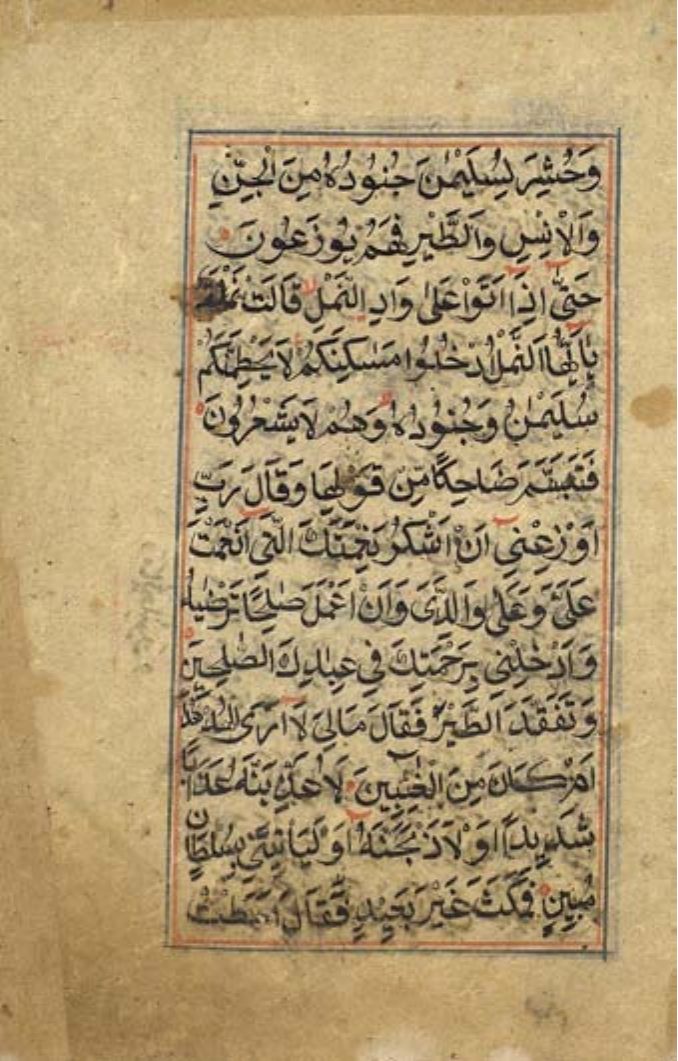 وَحُشِرَ لِسُلَيْمٰنَ جُنُودُهُ مِنَ الْجِنِّ
وَالْاِنْسِ وَالطَّيْرِ فَهُمْ يُوزَعُونَ
حَتّٰى اِذَا اَتَوْا عَلٰى وَادِ النَّمْلِ قَالَتْ نَمْلَةٌ
يٰاَيُّهَا النَّمْلُ ادْخُلُوا مَسٰكِنَكُمْ لَا يَحْطِمَنَّكُمْ
سُلَيْمٰنُ وَجُنُودُهُ وَهُمْ لَا يَشْعُرُونَ
فَتَبَسَّمَ ضَاحِكًا مِنْ قَوْلِهَا وَقَالَ رَبِّ
اَوْزِعْنِى اَنْ اَشْكُرَ نِعْمَتَكَ الَّتِى اَنْعَمْتَ
عَلَىَّ وَعَلٰى وَالِدَىَّ وَاَنْ اَعْمَلَ صٰلِحًا تَرْضٰيهُ
وَاَدْخِلْنِى بِرَحْمَتِكَ فِى عِبَادِكَ الصّٰلِحِينَ
وَتَفَقَّدَ الطَّيْرَ فَقَالَ مَالِىَ لَا اَرَى الْهُدْهُدَ
اَمْ كَانَ مِنَ الْغَآئِبِينَ لَاُعَذِّبَنَّهُ عَذَابًا
شَدِيدًا اَوْ لَاَذْبَحَنَّهُ اَوْ لَيَاْتِيَنِّى بِسُلْطَانٍ
مُبِينٍ فَمَكَثَ غَيْرَ بَعِيدٍ فَقَالَ اَحَطْتُ